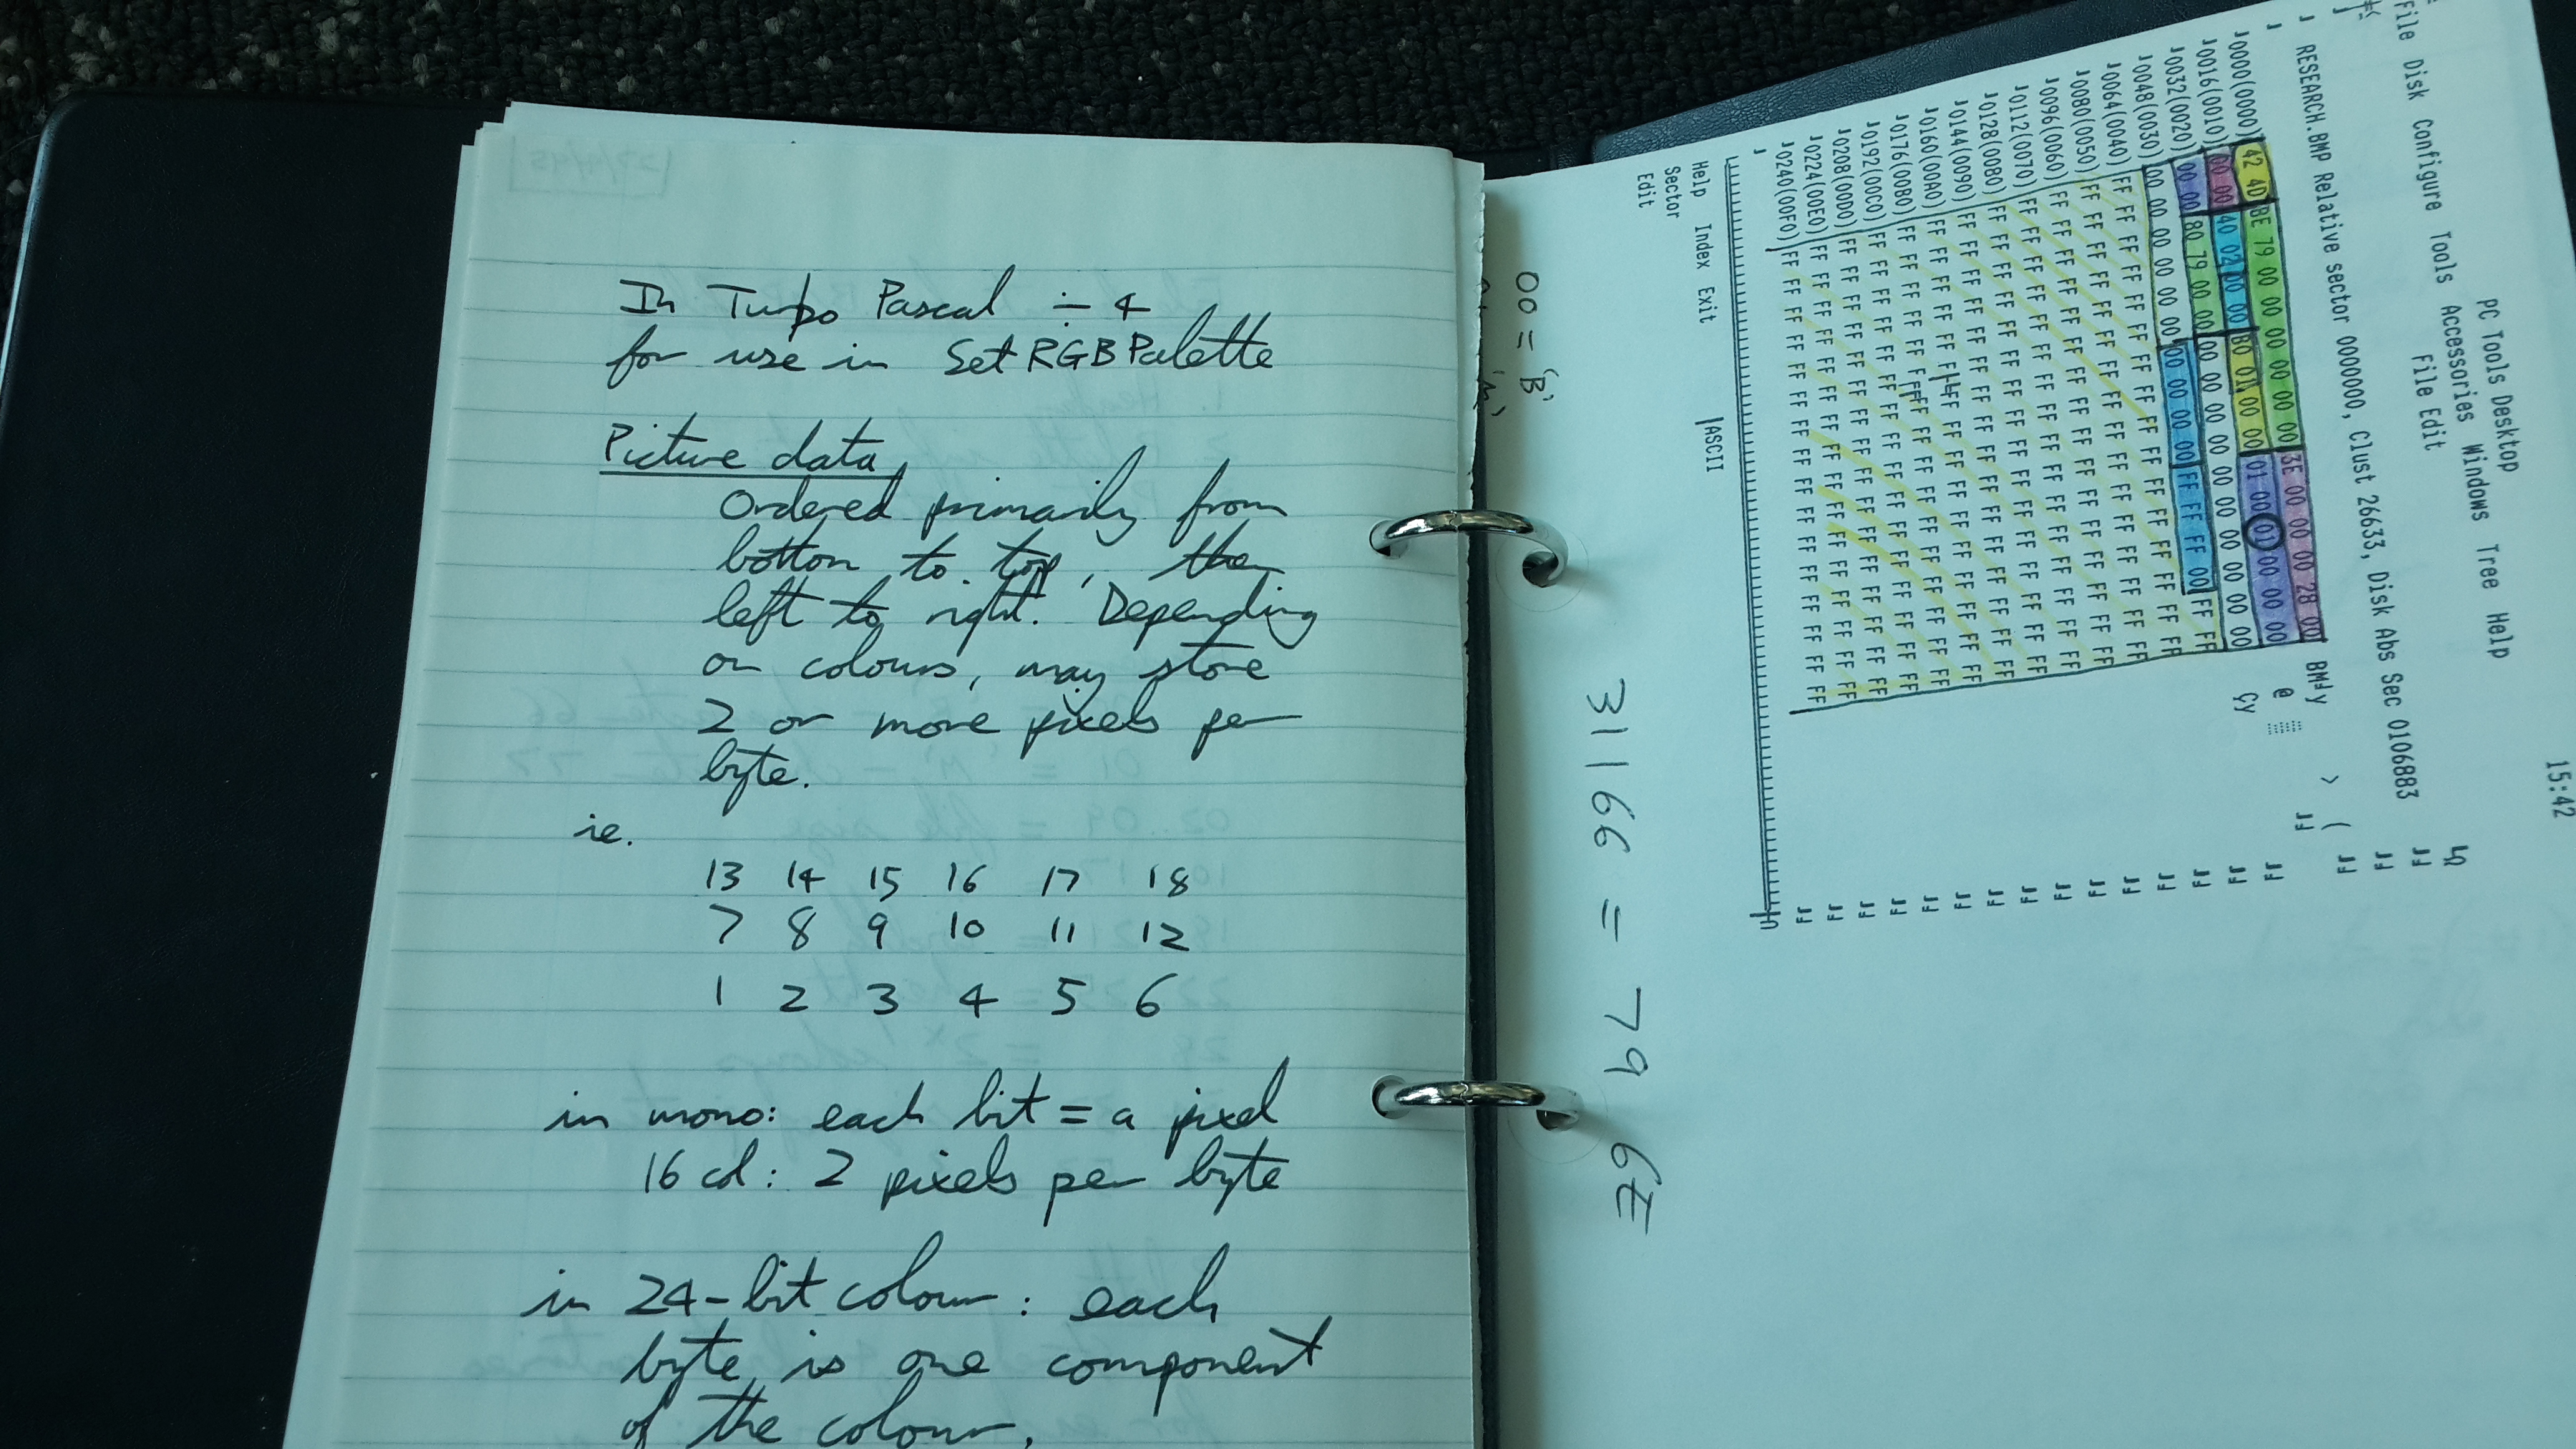 In Turbo Pascal ÷ 4
for use in SetRGBPalette
Picture data
Ordered primarily from
bottom to top, then
left to right. Depending
on colours, may store
2 or more pixels per
byte.
ie.
13 14 15 16 17 18
7 8 9 10 11 12
1 2 3 4 5 6
in mono: each bit = a pixel
16 col: 2 pixels per byte
in 24-bit colour: each
byte is one component
of the colour.
15:42
PC Tools Desktop
File Disk Configure Tools Accessories Windows Tree Help
File Edit
RESEARCH.BMP Relative sector 0000000, Clust 26633, Disk Abs Sec 0106883
0000(0000) 42 4D BE 79 00 00 00 00 00 00 3E 00 00 00 28 00
0016(0010) 00 00 40 02 00 00 B0 01 00 00 01 00 01 00 00 00
0032(0020) 00 00 80 79 00 00 00 00 00 00 00 00 00 00 00 00
0048(0030) 00 00 00 00 00 00 00 00 00 00 FF FF FF 00 FF FF
0064(0040) FF FF FF FF FF FF FF FF FF FF FF FF FF FF FF FF
0080(0050) FF FF FF FF FF FF FF FF FF FF FF FF FF FF FF FF
0096(0060) FF FF FF FF FF FF FF FF FF FF FF FF FF FF FF FF
0112(0070) FF FF FF FF FF FF FF FF FF FF FF FF FF FF FF FF
0128(0080) FF FF FF FF FF FF FF FF FF FF FF FF FF FF FF FF
0144(0090) FF FF FF FF FF FF FF FF FF FF FF FF FF FF FF FF
0160(00A0) FF FF FF FF FF FF FF FF FF FF FF FF FF FF FF FF
0176(00B0) FF FF FF FF FF FF FF FF FF FF FF FF FF FF FF FF
0192(00C0) FF FF FF FF FF FF FF FF FF FF FF FF FF FF FF FF
0208(00D0) FF FF FF FF FF FF FF FF FF FF FF FF FF FF FF FF
0224(00E0) FF FF FF FF FF FF FF FF FF FF FF FF FF FF FF FF
0240(00F0) FF FF FF FF FF FF FF FF FF FF FF FF FF FF FF FF
Help Index Exit ASCII
Sector
Edit
31166 = 79 6E
00 = 'B'